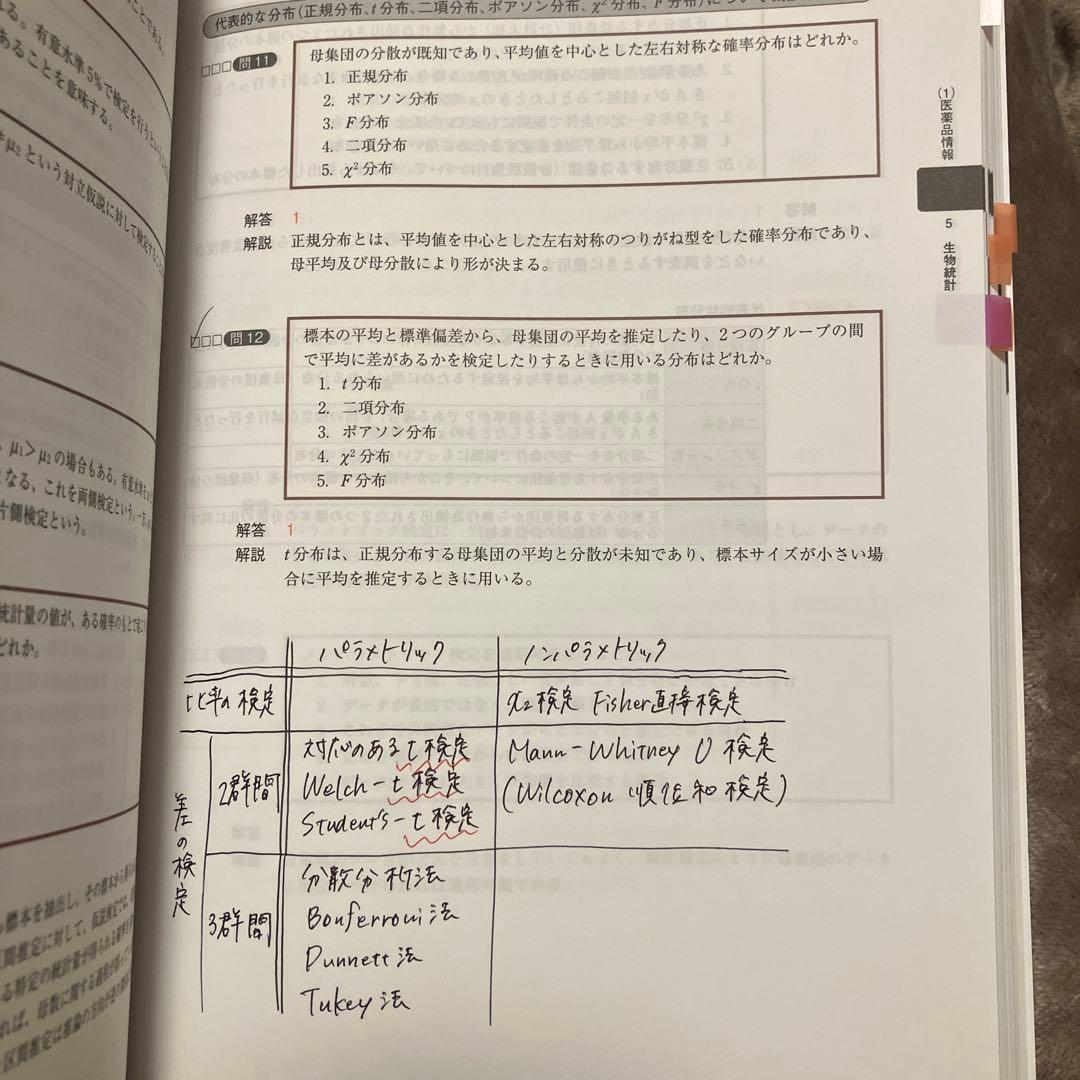 代表的な分布(正規分布、t分布、二項分布、ポアソン分布、χ²分布、F分布)について
問11
母集団の分散が既知であり、平均値を中心とした左右対称な確率分布はどれか。
1. 正規分布
2. ポアソン分布
3. F分布
4. 二項分布
5. χ²分布
解答 1
解説 正規分布とは、平均値を中心とした左右対称のつりがね型をした確率分布であり、
母平均及び母分散により形が決まる。
問12
標本の平均と標準偏差から、母集団の平均を推定したり、2つのグループの間
で平均に差があるかを検定したりするときに用いる分布はどれか。
1. t分布
2. 二項分布
3. ポアソン分布
4. χ²分布
5. F分布
解答 1
解説 t分布は、正規分布する母集団の平均と分散が未知であり、標本サイズが小さい場
合に平均を推定するときに用いる。
パラメトリック ノンパラメトリック
比率の検定 χ2検定 Fisher直接検定
差の検定
2群間
対応のあるt検定
Welch-t検定
Student's-t検定
Mann-Whitney U 検定
(Wilcoxon 順位和検定)
3群間
分散分析法
Bonferroni法
Dunnett法
Tukey法
(1)医薬品情報
5 生物統計
有意水準5%で検定を行うという
あることを意味する。
μ2という対立仮説に対して検定する
μ1>μ2の場合もある。有意水準を
となる、これを両側検定という。一方、
片側検定という。
統計量の値が、ある確率のもとで
どれか。
標本を抽出し、その標本から
区間推定に対して、仮説検定では、
る特定の統計量が得られる確率を
れば、母数に関する
区間推定は推論の方向が